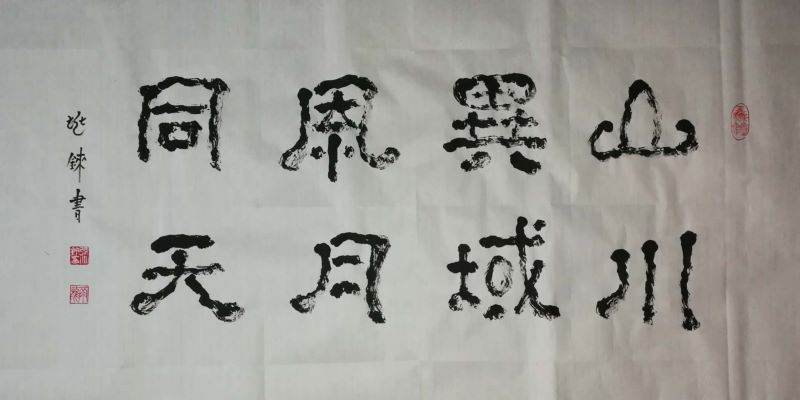 山川
異域
風月
同天
書